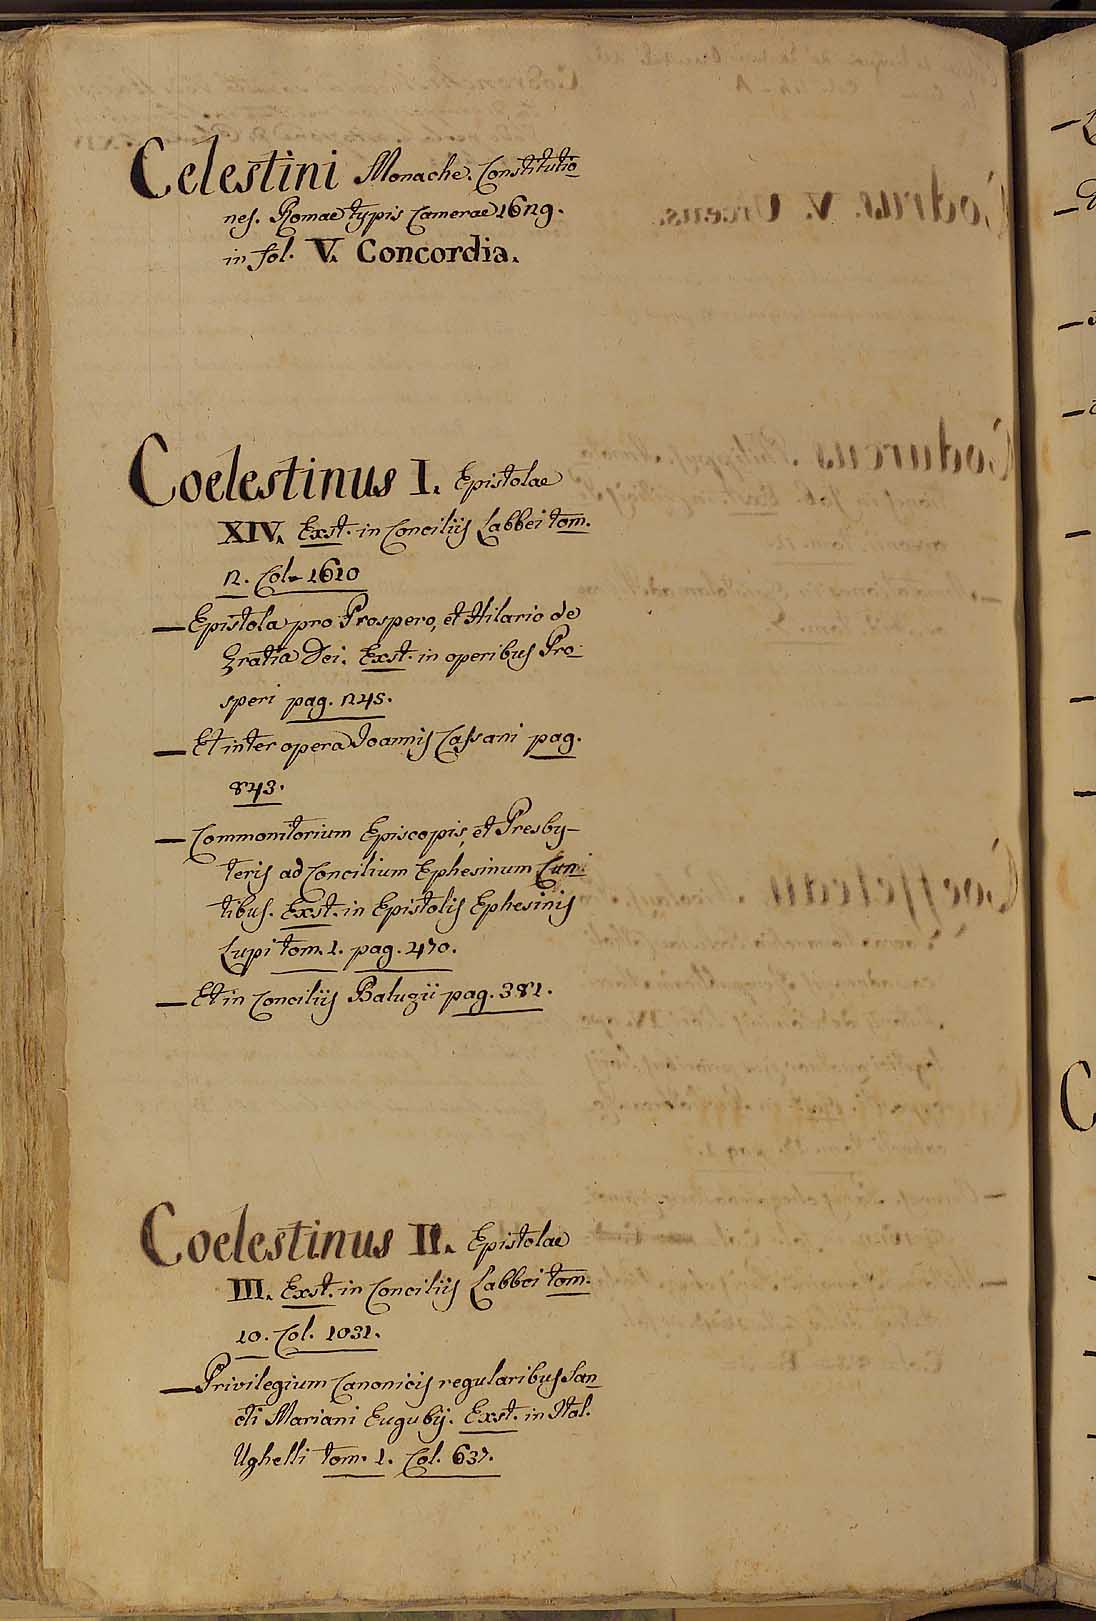 Celestini Monache. Constitutio
nes. Romae typis Camerae 1629.
in fol. V. Concordia.
Coelestinus I. Epistolae
XIV. Exst. in Conciliis Labbei tom.
2. Col. 1610
— Epistola pro Prospero, et Hilario de
Gratia Dei. Exst. in operibus Pro
speri pag. 245.
— Et inter opera Joannis Cassani pag.
843.
— Commonitorium Episcopis, et Presby-
teris ad Concilium Ephesinum Eun
tibus. Exst. in Epistolis Ephesinis
Lupi tom. 1. pag. 470.
— Et in Conciliis Baluzii pag. 381.
Coelestinus II. Epistolae
III. Exst. in Conciliis Labbei tom.
10. Col. 1031.
— Privilegium Canonicis regularibus San
cti Mariani Eugubij. Exst. in Ital.
Ughelli tom. 1. Col. 637.